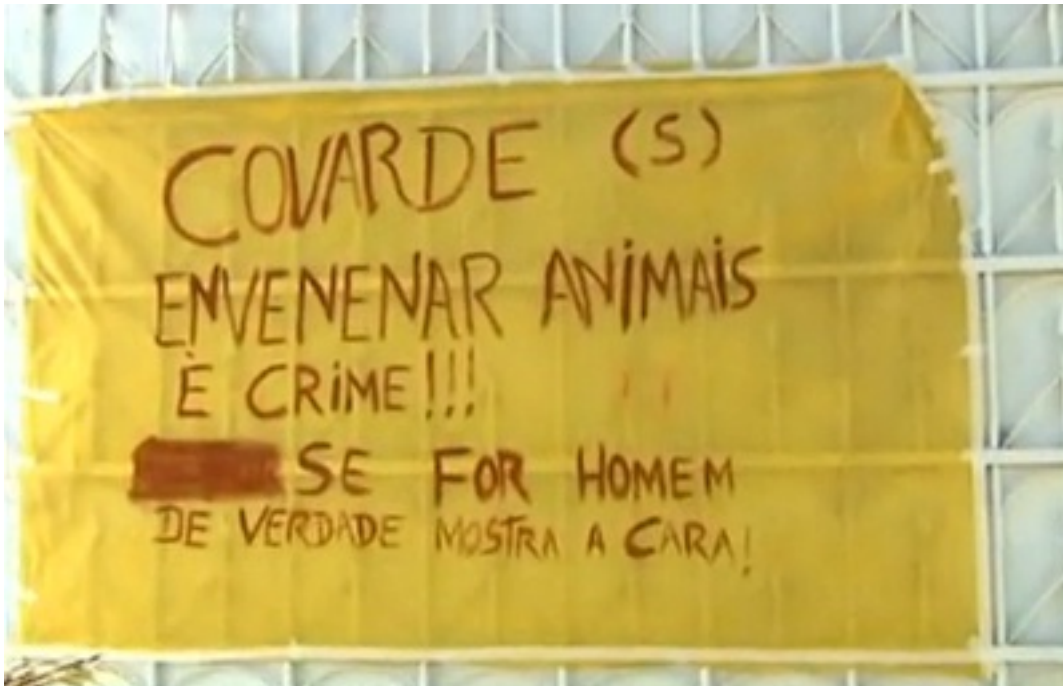 COVARDE (S)
ENVENENAR ANIMAIS
È CRIME!!!
SE FOR HOMEM
DE VERDADE MOSTRA A CARA!